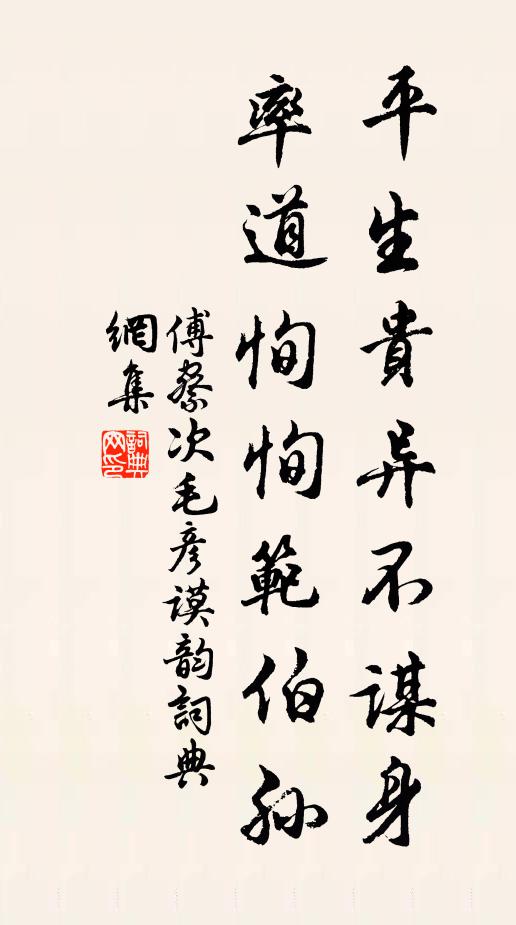 平生貴异不謀身
率道恂恂範伯孙
傅察次毛彦謨韵詞典
網集
詞典
网印